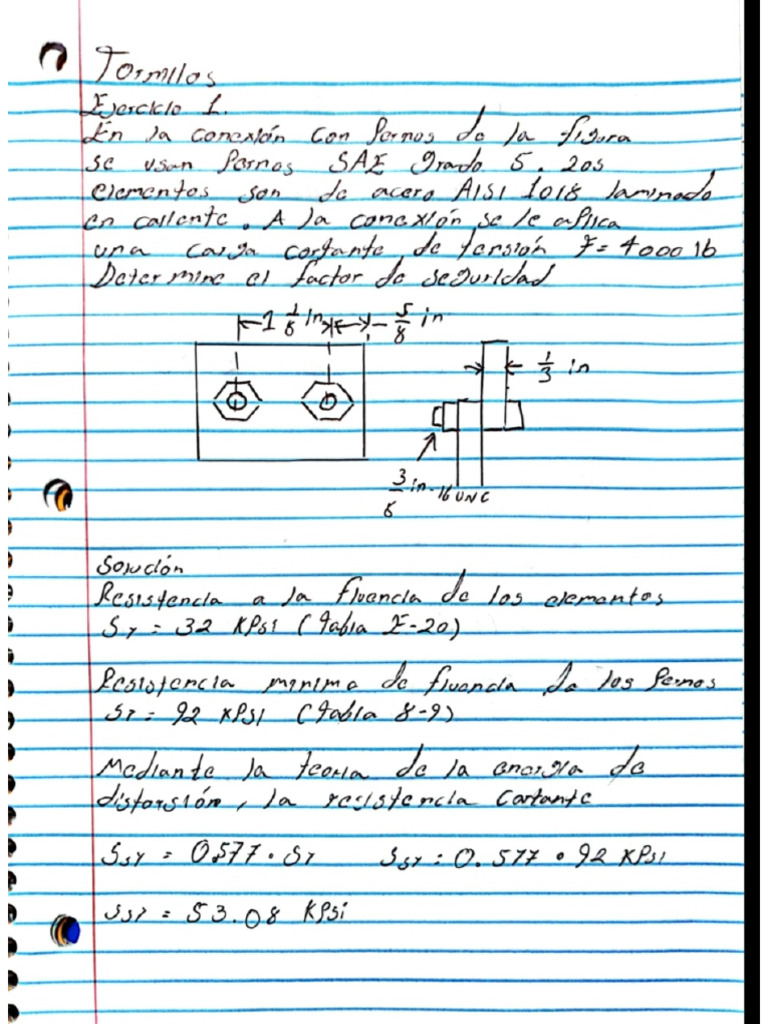 Tornillos
Ejercicio 1.
En la conexión con Pernos de la figura
se usan Pernos SAE grado 5. Los
elementos son de acero AISI 1018 laminado
en caliente. A la conexión se le aplica
una carga cortante de tensión F= 4000 lb
Determine el factor de seguridad
1 1/8 in 5/8 in
1/3 in
3/8 in-16 UNC
Solución
Resistencia a la fluencia de los elementos
Sy = 32 KPsi (tabla E-20)
Resistencia minima de fluencia de los Pernos
Sy = 92 KPsi (tabla 8-9)
Mediante la teoria de la energia de
distorsión, la resistencia Cortante
Ssy = 0.577 · Sy Ssy = 0.577 · 92 KPsi
Ssy = 53.08 KPsi